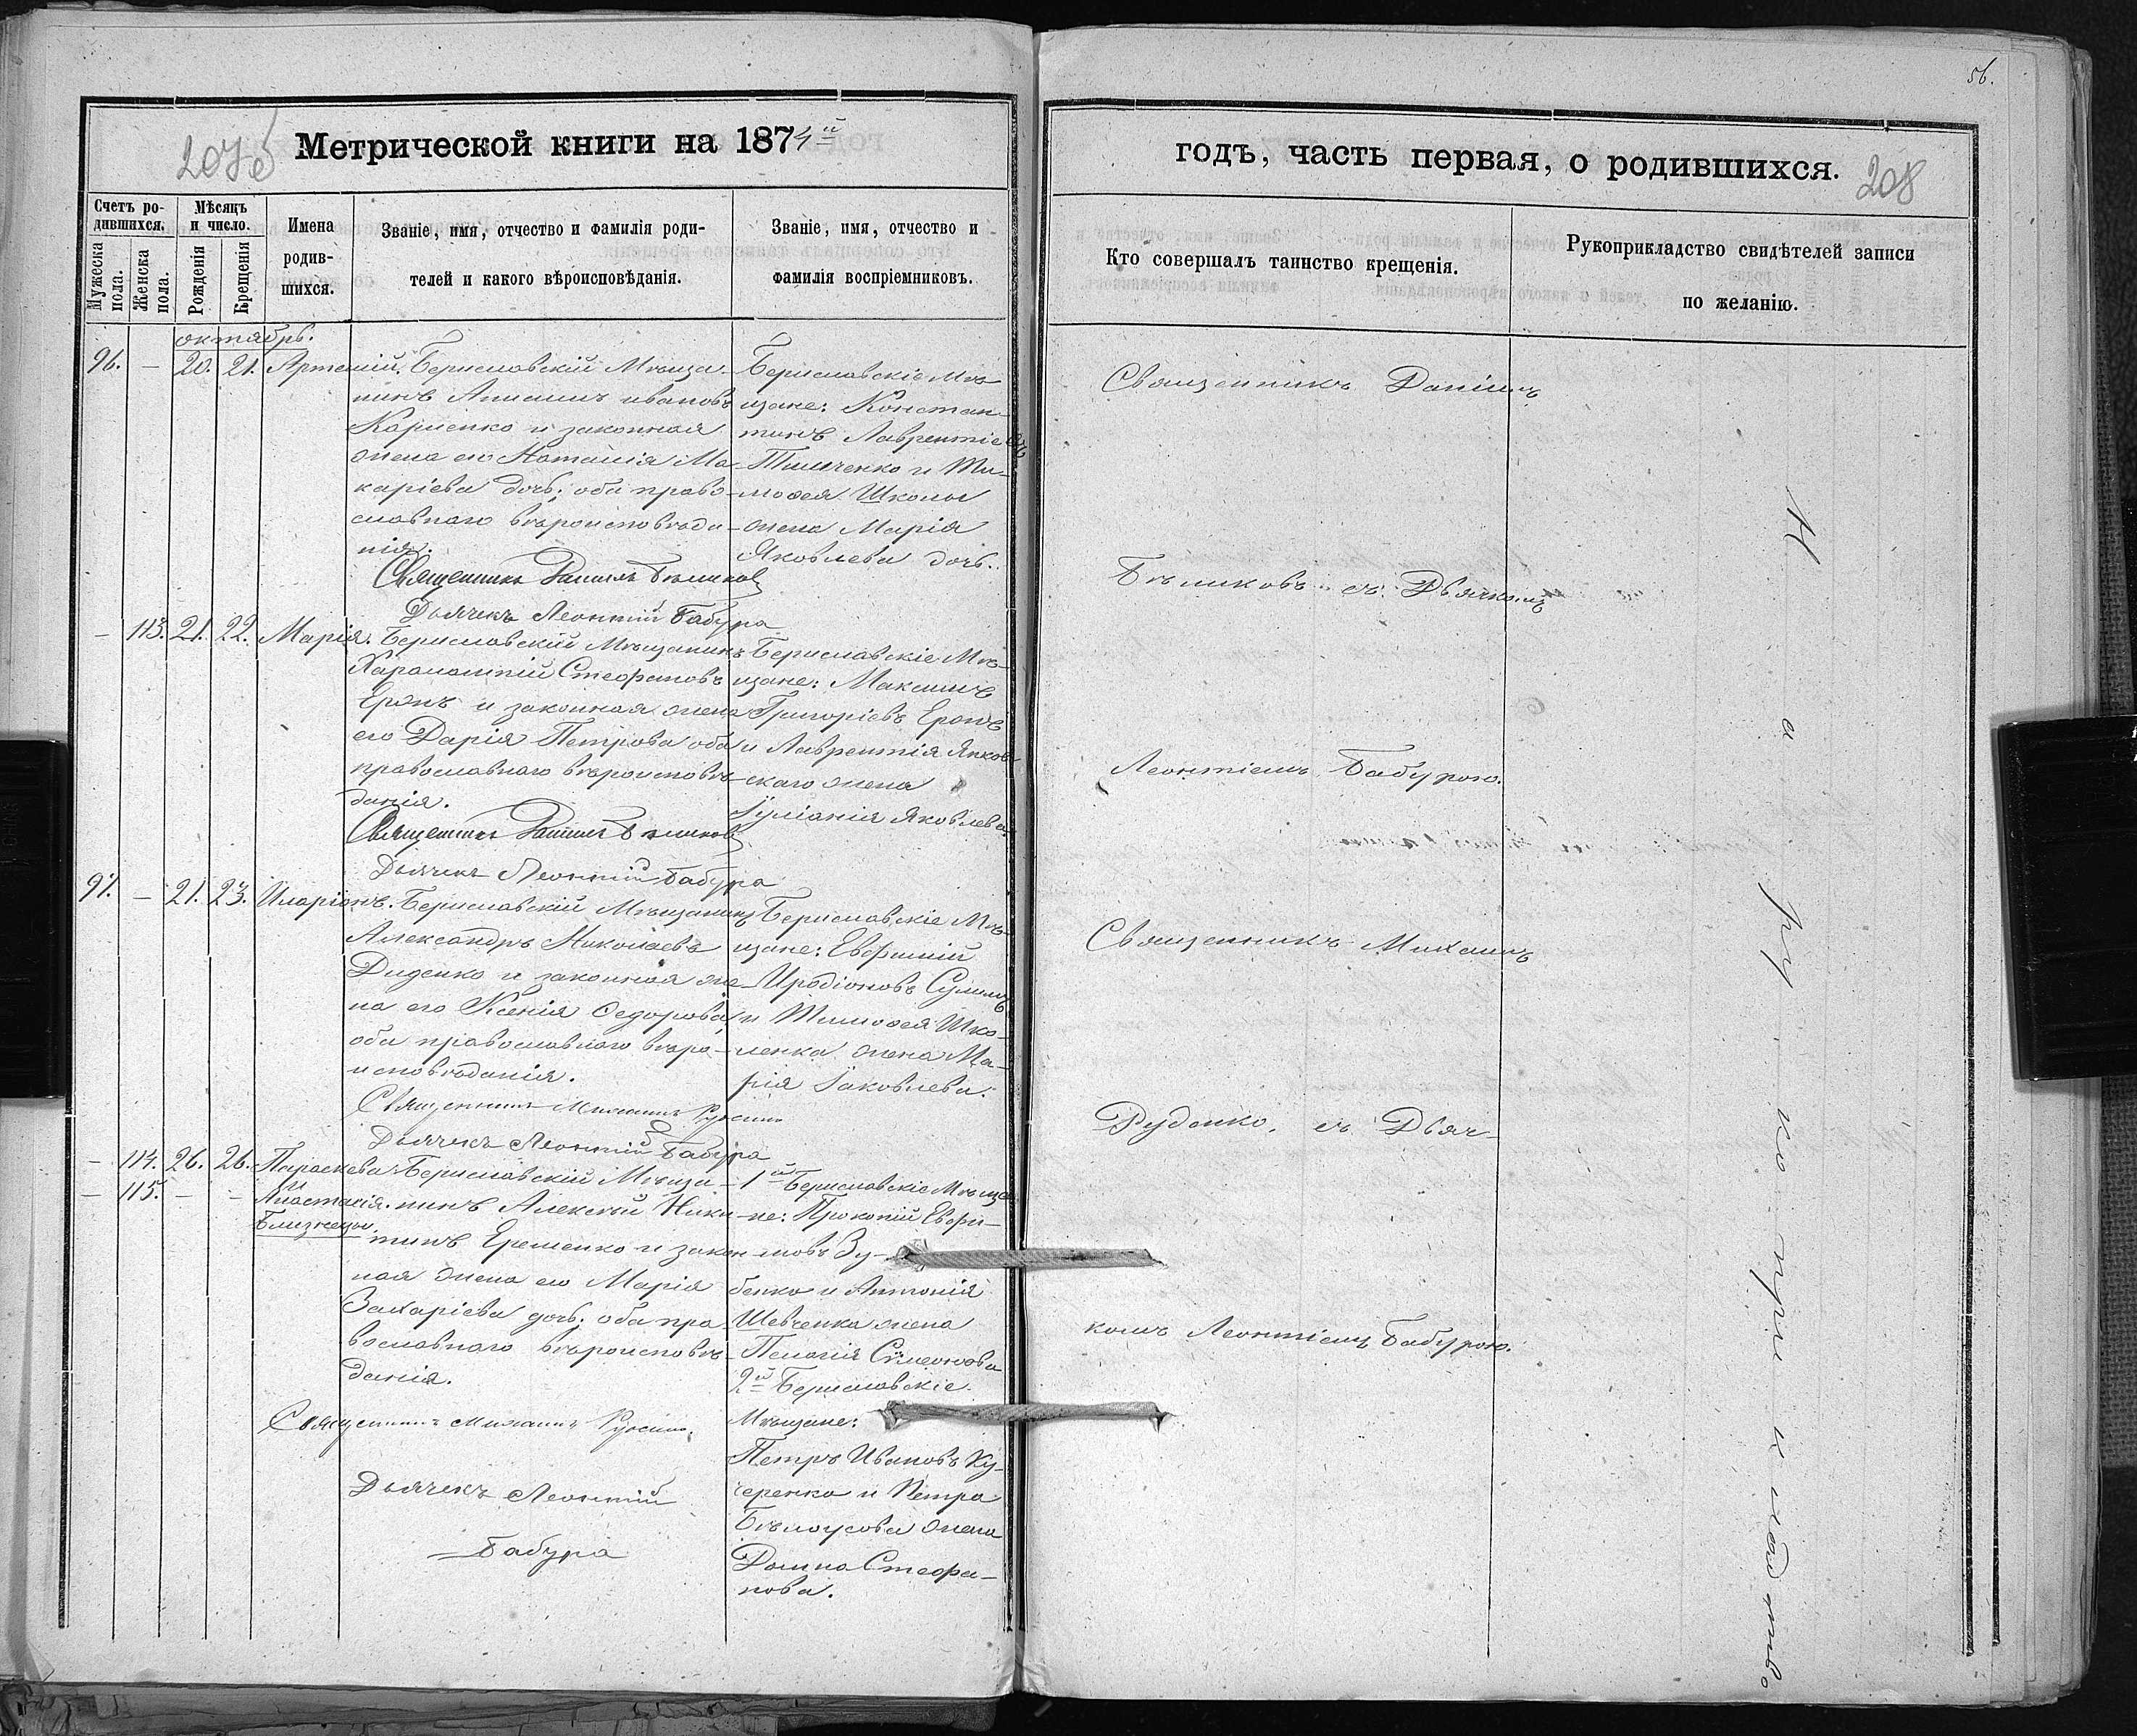 56.
207б
Метрической книги на 1874й
годъ, часть первая, о родившихся.
208
Счетъ ро-
дившихся.
Мужеска
пола.
Женска
пола.
Мѣсяцъ
и число.
Рожденія
Крещенія
Имена
родив-
шихся.
Званіе, имя, отчество и фамилія роди-
телей и какого вѣроисповѣданія.
Званіе, имя, отчество и
фамилія воспріемниковъ.
Кто совершалъ таинство крещенія.
Рукоприкладство свидѣтелей записи
по желанію.
октябрь.
96. — 20. 21. Артемій.
Бериславскій Мѣща-
нинъ ивановъ
и законная
жена его Наталія Ма-
каріева дочь; оба право-
славнаго вѣроисповѣда-
нія.
Священникъ Даніилъ Бѣликовъ
Дьячекъ Леонтій Бабура
Бериславскіе Мѣ-
щане: Констан-
тинъ Лаврентіевъ
Тимченко и Ти-
мофея Школы
жена Марія
Яковлева дочь.
— 113. 21. 22. Марія.
Бериславскій Мѣщанинъ
Харалампій Стефановъ
и законная жена
его Дарія Петрова оба
православнаго вѣроисповѣ-
данія.
Священникъ Даніилъ Бѣликовъ
Дьячекъ Леонтій Бабура
Бериславскіе Мѣ-
щане: Максимъ
Григоріевъ
и Лаврентія Янков-
скаго жена
Іуліанія Яковлева.
97. — 21. 23. Иларіонъ.
Бериславскій Мѣщанинъ
Александръ Николаевъ
Диденко и законная же-
на его Ксенія Седорова,
оба православнаго вѣро-
исповѣданія.
Священникъ Михаилъ
Дьячекъ Леонтій Бабура
Бериславскіе Мѣ-
щане: Евфимій
Иродіоновъ
и Тимофея Шко-
ленка жена Ма-
рія Іаковлева.
— 114. 26. 26. Параскева
— 115. — — и
Анастасія.
Близнецы.
Бериславскій Мѣща-
нинъ Алексѣй Ники-
тинъ Еременко и закон-
ная жена его Марія
Захаріева дочь; оба пра-
вославнаго вѣроисповѣ-
данія.
Священникъ Михаилъ
Дьячекъ Леонтій
Бабура
1й Бериславскіе Мѣща-
не: Прокопій Евфи-
мовъ Зу-
бенко и Антонія
Шевченка жена
Пелагія Сѵмеонова
2й Бериславскіе
Мѣщане:
Петръ Ивановъ Ку-
черенко и Петра
Бѣлоусова жена
Домна Стефа-
нова.
Священникъ Даніилъ
Бѣликовъ съ Дьячкомъ
Леонтіемъ Бабурою.
Священникъ Михаилъ
Руденко, съ Дьяч-
комъ Леонтіемъ Бабурою.